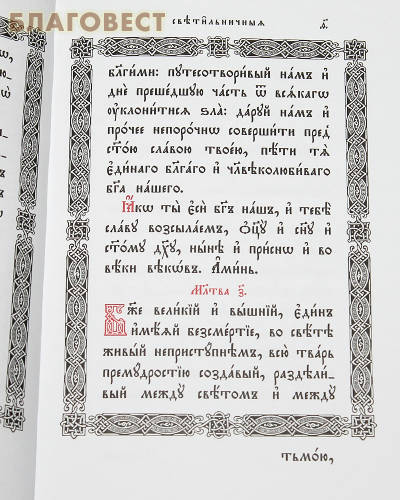 БЛАГОВЕСТ
свѣти́льничныѧ
благи́ми: путесотвори́вый на́мъ и҆
днѐ преше́дшую ча́сть ѿ всѧ́кагѡ
ᲂу҆клони́тисѧ ѕла̀: да́руй на́мъ и҆
про́чее непоро́чнѡ соверши́ти пред̾
ст҃о́ю сла́вою твое́ю, пѣ́ти тѧ̀
є҆ди́наго бл҃га́го и҆ чл҃вѣколюби́ваго
бг҃а на́шего.
Ꙗ҆́кѡ ты̀ є҆сѝ бг҃ъ на́шъ, и҆ тебѣ̀
сла́ву возсыла́емъ, ѻ҆ц҃у̀ и҆ сн҃у и҆
ст҃о́му дх҃у, ны́нѣ и҆ при́снѡ и҆ во
вѣ́ки вѣкѡ́въ. А҆ми́нь.
Мл҃тва з҃.
Бж҃е вели́кїй и҆ вы́шнїй, є҆ди́нъ
и҆мѣ́ѧй безсме́ртїе, во свѣ́тѣ
живы́й непристꙋ́пнѣмъ, всю̀ тва́рь
премꙋ́дростїю созда́вый, раздѣли́-
вый междꙋ̀ свѣ́томъ и҆ междꙋ̀
тьмо́ю,